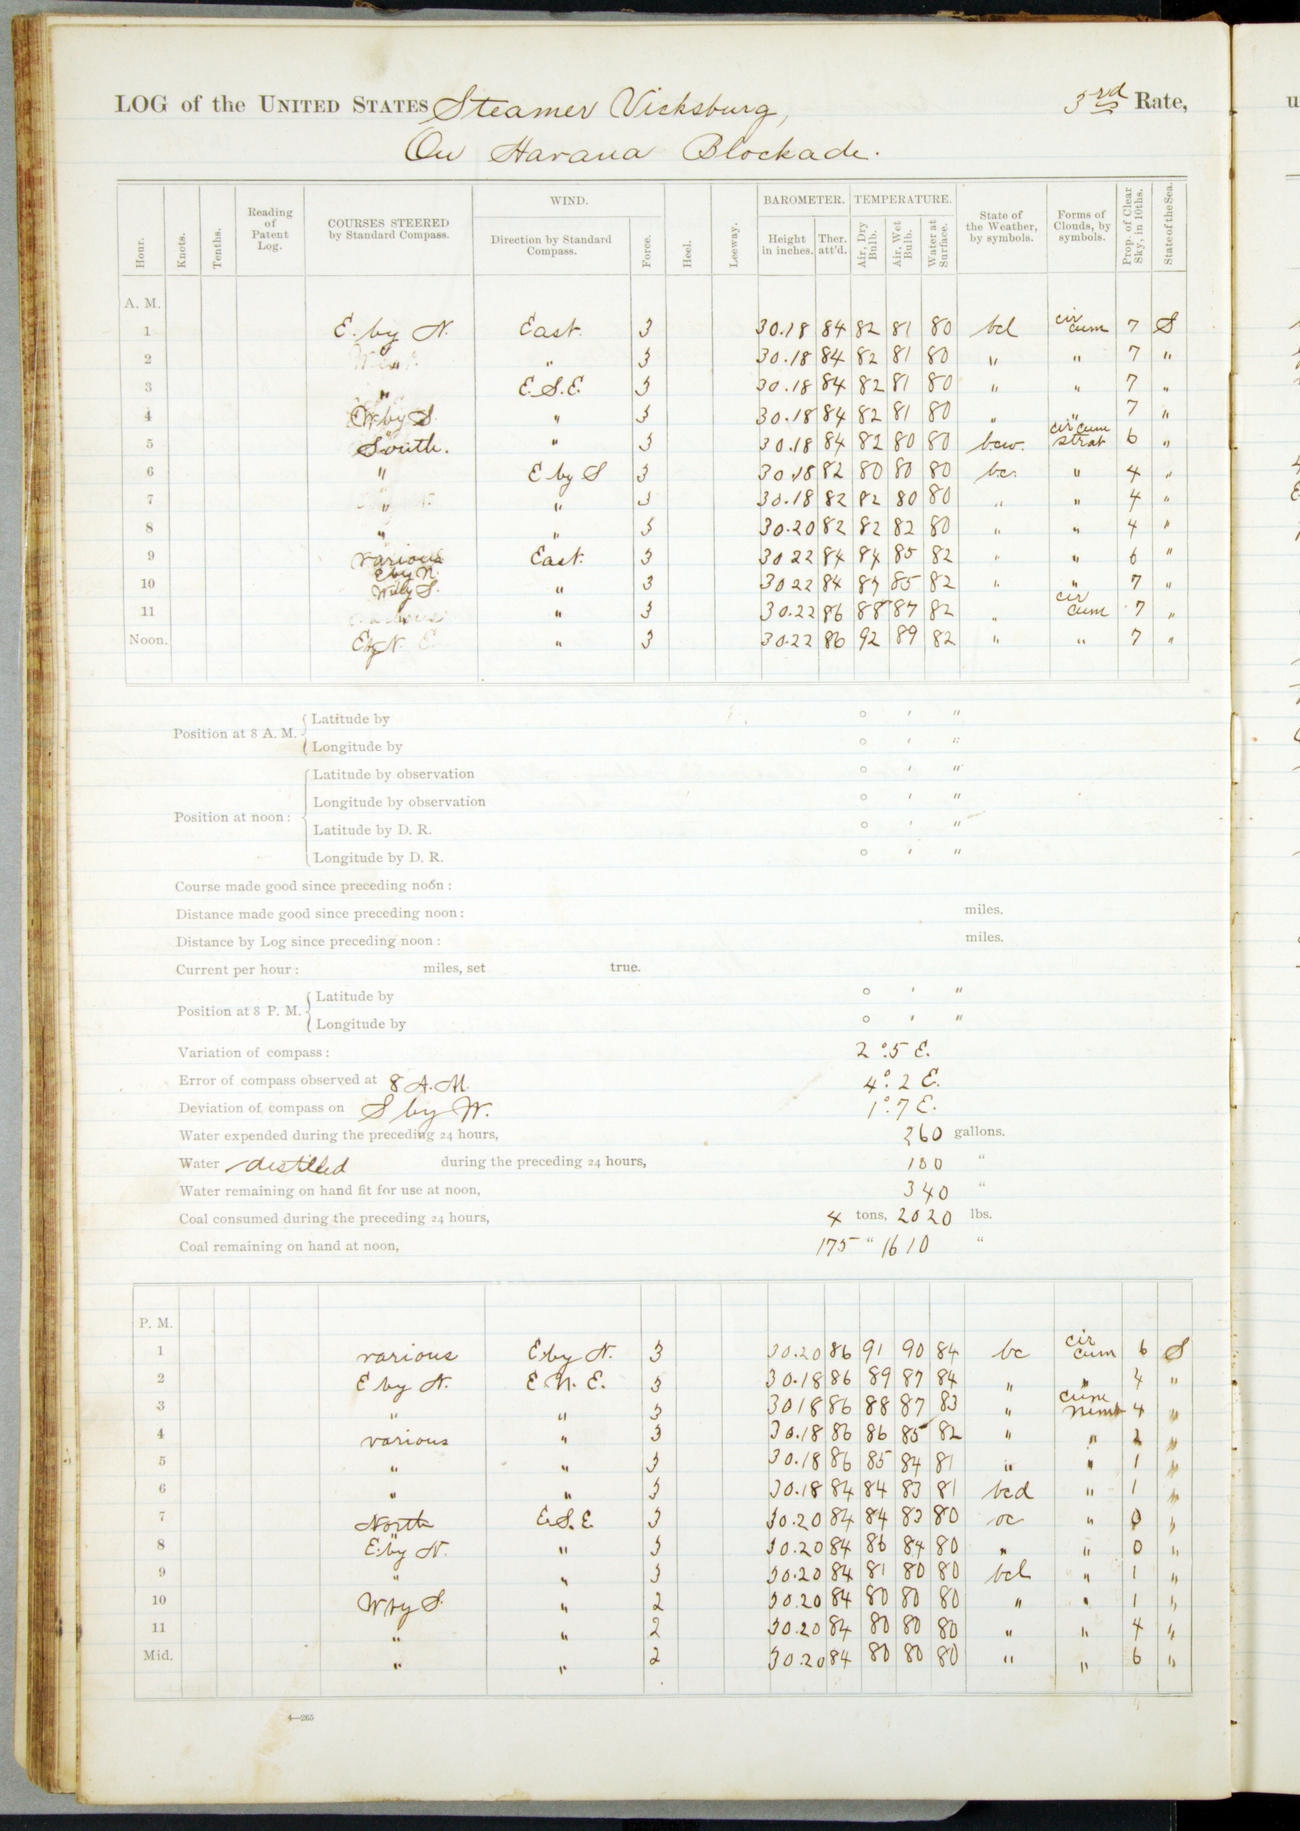 LOG of the UNITED STATES Steamer Vicksburg, 3rd Rate,
On Havana Blockade.
Hour. Knots. Tenths. Reading of Patent Log. COURSES STEERED by Standard Compass. WIND. Direction by Standard Compass. Force. Heel. Leeway. BAROMETER. Height in inches. Ther. att'd. TEMPERATURE. Air, Dry Bulb. Air, Wet Bulb. Water at Surface. State of the Weather, by symbols. Forms of Clouds, by symbols. Prop. of Clear Sky, in 10ths. State of the Sea.
A. M.
1 E. by N. East. 3 30.18 84 82 81 80 bcl cir cum 7 S
2 " " 3 30.18 84 82 81 80 " " 7 "
3 " E.S.E. 3 30.18 84 82 81 80 " " 7 "
4 W by S. " 3 30.18 84 82 81 80 " " 7 "
5 South. " 3 30.18 84 82 80 80 bcw. cir cum strat 6 "
6 " E by S 3 30.18 82 80 80 80 bc. " 4 "
7 " " 3 30.18 82 82 80 80 " " 4 "
8 " " 3 30.20 82 82 82 80 " " 4 "
9 various East. 3 30 22 84 84 85 82 " " 6 "
E by N.
10 W by S. " 3 30 22 84 87 85 82 " " 7 "
11 " 3 30.22 86 88 87 82 " cir cum 7 "
Noon. E by N. " 3 30.22 86 92 89 82 " " 7 "
Position at 8 A. M. Latitude by ° ' "
Longitude by ° ' "
Position at noon: Latitude by observation ° ' "
Longitude by observation ° ' "
Latitude by D. R. ° ' "
Longitude by D. R. ° ' "
Course made good since preceding noon:
Distance made good since preceding noon: miles.
Distance by Log since preceding noon: miles.
Current per hour: miles, set true.
Position at 8 P. M. Latitude by ° ' "
Longitude by ° ' "
Variation of compass: 2°.5 E.
Error of compass observed at 8 A.M. 4°.2 E.
Deviation of compass on S by W. 1°.7 E.
Water expended during the preceding 24 hours, 260 gallons.
Water distilled during the preceding 24 hours, 100 "
Water remaining on hand fit for use at noon, 340 "
Coal consumed during the preceding 24 hours, 4 tons, 2020 lbs.
Coal remaining on hand at noon, 175 " 1610 "
P. M.
1 various E by N. 3 30.20 86 91 90 84 bc cir cum 6 S
2 E by N. E N. E. 3 30.18 86 89 87 84 " " 4 "
3 " " 3 30 18 86 88 87 83 " cum nimb 4 "
4 various " 3 30.18 86 86 85 82 " " 2 "
5 " " 3 30.18 86 85 84 81 " " 1 "
6 " " 3 30.18 84 84 83 81 bcd " 1 "
7 North E.S.E 3 30.20 84 84 83 80 oc " 0 "
8 E by N. " 3 30.20 84 86 84 80 " " 0 "
9 " " 3 30.20 84 81 80 80 bcl " 1 "
10 W by S. " 2 30.20 84 80 80 80 " " 1 "
11 " " 2 30.20 84 80 80 80 " " 4 "
Mid. " " 2 30.20 84 80 80 80 " " 6 "
4—265